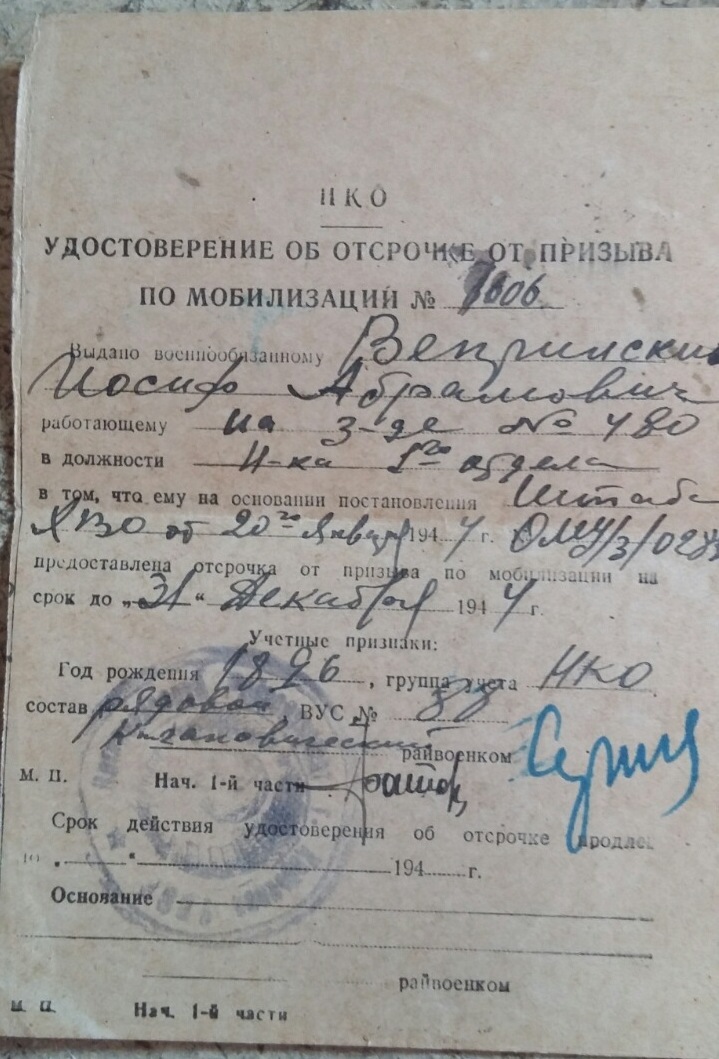 НКО
УДОСТОВЕРЕНИЕ ОБ ОТСРОЧКЕ ОТ ПРИЗЫВА
ПО МОБИЛИЗАЦИИ № 1606
Выдано военнообязанному Веприлский
Иосиф Абрамович
работающему на з-де № 480
в должности Н-ка 1го отдела
в том, что ему на основании постановления Штаба
ХВО от 20го Января 1944 г. ОМУ/3/028
предоставлена отсрочка от призыва по мобилизации на
срок до „31“ Декабря 1944 г.
Учетные признаки:
Год рождения 1896, группа учета НКО
состав рядовой ВУС № 88
Кагановический райвоенком
М. П. Нач. 1-й части
Срок действия удостоверения об отсрочке продлен
до „ “ 194 г.
Основание
райвоенком
М. П. Нач. 1-й части